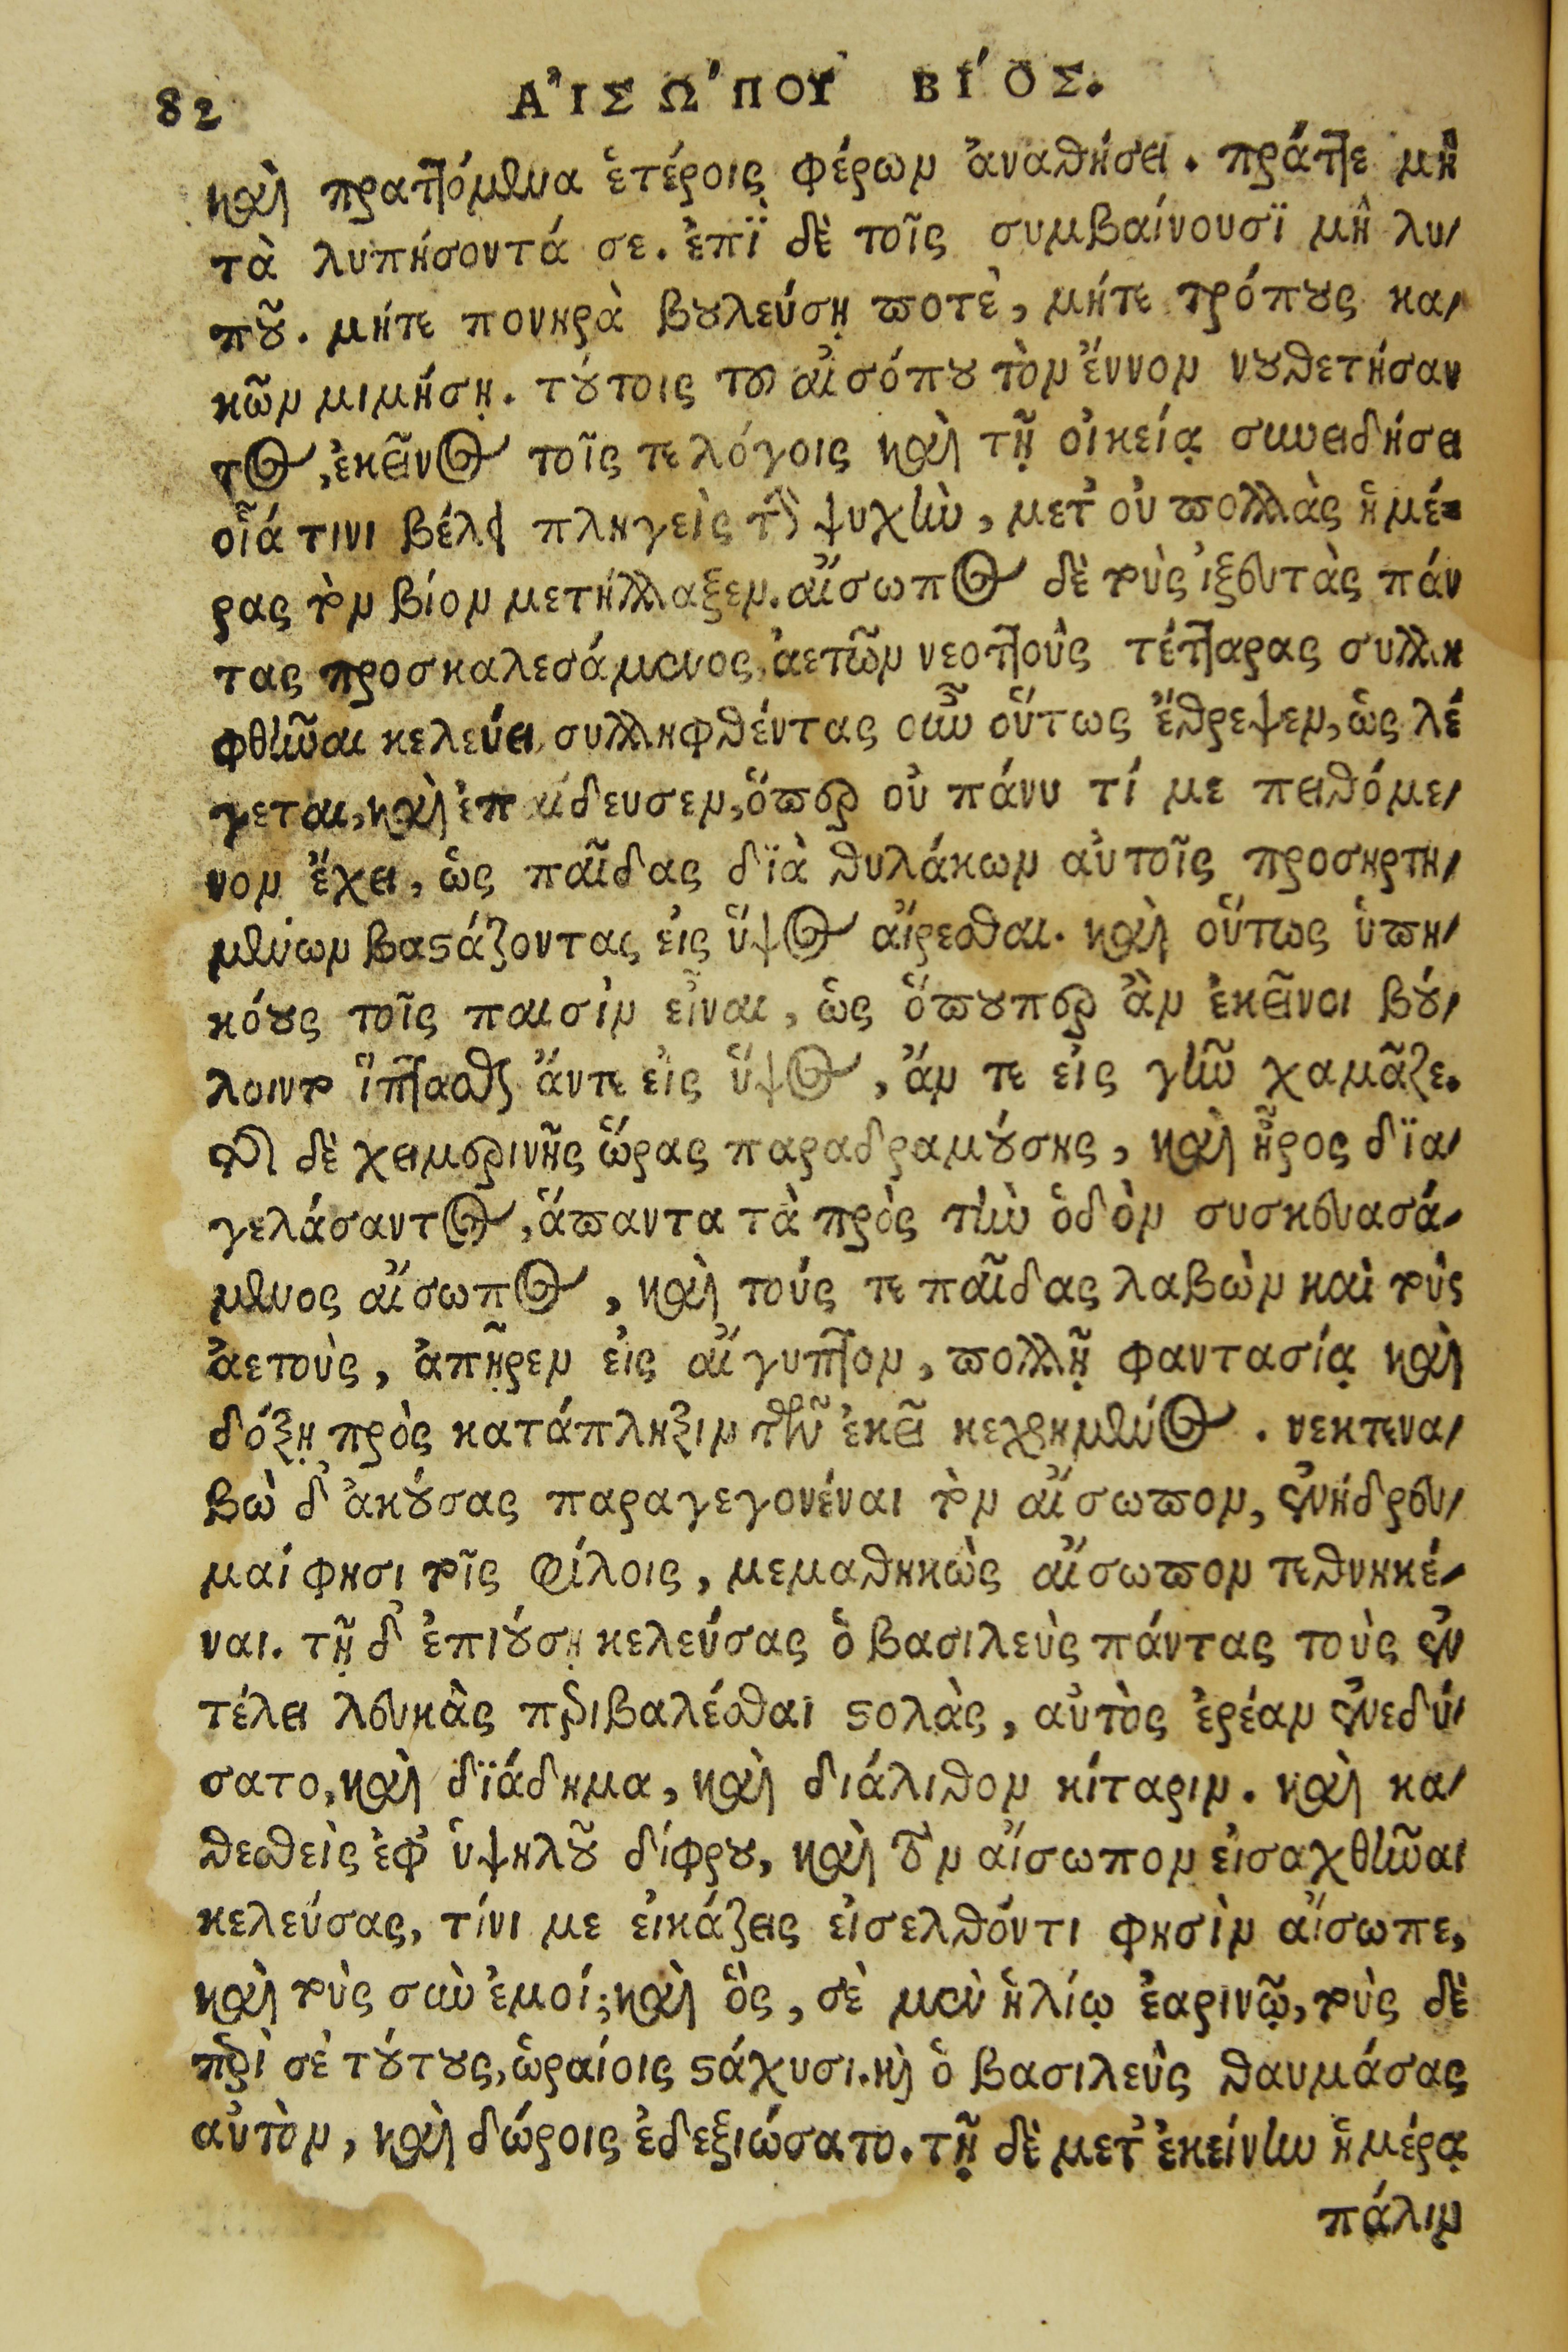 82 ΑἸΣΩ´ΠΟΥ ΒΙ´ΟΣ.
καὶ πραττόμενα ἑτέροις φέρων ἀναθήσει. πράττε μὴ
τὰ λυπήσοντά σε. ἐπὶ δὲ τοῖς συμβαίνουσι μὴ λυ/
ποῦ. μήτε πονηρὰ βουλεύσῃ ποτὲ, μήτε τρόπους κα/
κῶν μιμήσῃ. τούτοις τοῦ αἰσόπου τὸν ἔννον νουθετήσαν
τος, ἐκεῖνος τοῖς τε λόγοις καὶ τῇ οἰκείᾳ συνειδήσει
οἷά τινι βέλει πληγεὶς τὴν ψυχὴν, μετ' οὐ πολλὰς ἡμέ=
ρας τὸν βίον μετήλλαξεν. αἴσωπος δὲ τοὺς ἰξευτὰς πάν
τας προσκαλεσάμενος, ἀετῶν νεοττοὺς τέτταρας συλλη
φθῆναι κελεύει, συλληφθέντας οὖν οὕτως ἔθρεψεν, ὡς λέ
γεται, καὶ ἐπαίδευσεν, ὅπερ οὐ πάνυ τί με πειθόμε/
νον ἔχει, ὡς παῖδας διὰ θυλάκων αὐτοῖς προσηρτη/
μένων βαστάζοντας εἰς ὕψος αἴρεσθαι. καὶ οὕτως ὑπη/
κόους τοῖς παισὶν εἶναι, ὡς ὅπουπερ ἂν ἐκεῖνοι βού/
λοιντο ἵπτασθαι ἄντε εἰς ὕψος, ἄν τε εἰς γῆν χαμᾶζε.
τῆς δὲ χειμερινῆς ὥρας παραδραμούσης, καὶ ἦρος δια/
γελάσαντος, ἅπαντα τὰ πρὸς τὴν ὁδὸν συσκευασά-
μενος αἴσωπος, καὶ τούς τε παῖδας λαβὼν καὶ τοὺς
ἀετοὺς, ἀπῇρεν εἰς αἴγυπτον, πολλῇ φαντασίᾳ καὶ
δόξῃ πρὸς κατάπληξιν τῶν ἐκεῖ κεχρημένος. νεκτενα/
βὼ δ' ἀκούσας παραγεγονέναι τὸν αἴσωπον, ἐνήδρευ/
μαί φησι τοῖς φίλοις, μεμαθηκὼς αἴσωπον τεθνηκέ-
ναι. τῇ δ' ἐπιούσῃ κελεύσας ὁ βασιλεὺς πάντας τοὺς ἐν
τέλει λευκὰς περιβαλέσθαι στολὰς, αὐτὸς ἐρέαν ἐνεδύ/
σατο, καὶ διάδημα, καὶ διάλιθον κίταριν. καὶ κα/
θεσθεὶς ἐφ' ὑψηλοῦ δίφρου, καὶ τὸν αἴσωπον εἰσαχθῆναι
κελεύσας, τίνι με εἰκάζεις εἰσελθόντι φησὶν αἴσωπε,
καὶ τοὺς σὺν ἐμοί; καὶ ὃς, σὲ μὲν ἡλίῳ ἐαρινῷ, τοὺς δὲ
περὶ σὲ τούτους, ὡραίοις στάχυσι. καὶ ὁ βασιλεὺς θαυμάσας
αὐτὸν, καὶ δώροις ἐδεξιώσατο. τῇ δὲ μετ' ἐκείνην ἡμέρᾳ
πάλιν